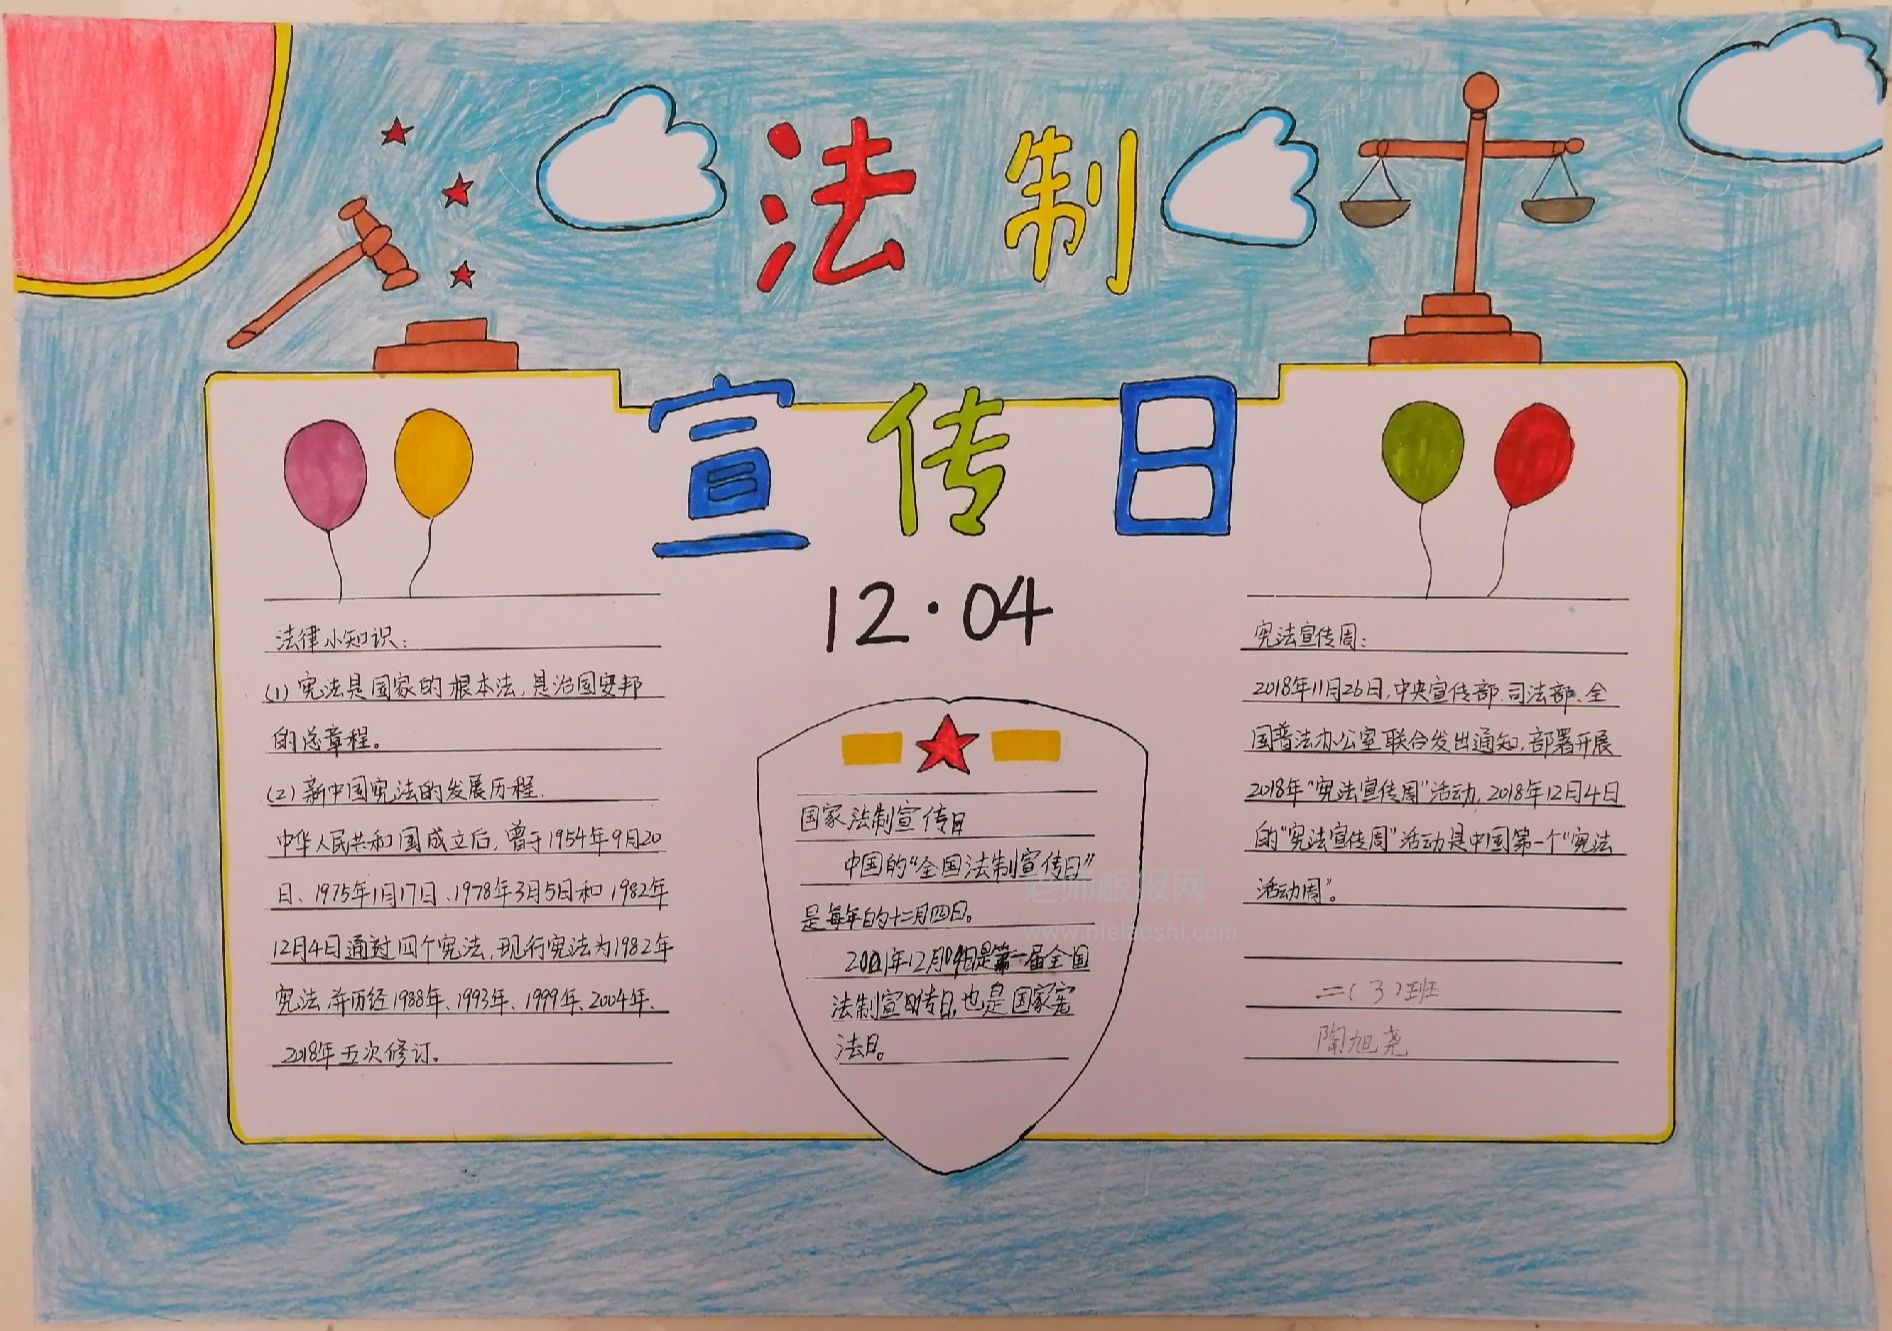 法制
宣传日
12·04
法律小知识：
(1) 宪法是国家的根本法，是治国安邦
的总章程。
(2) 新中国宪法的发展历程.
中华人民共和国成立后，曾于1954年9月20
日、1975年1月17日、1978年3月5日和1982年
12月4日通过四个宪法，现行宪法为1982年
宪法，并历经1988年、1993年、1999年、2004年、
2018年五次修订。
国家法制宣传日
中国的“全国法制宣传日”
是每年的十二月四日。
2001年12月04日是第一届全国
法制宣传日，也是国家宪
法日。
宪法宣传周：
2018年11月26日，中央宣传部、司法部、全
国普法办公室联合发出通知，部署开展
2018年“宪法宣传周”活动，2018年12月4日
的“宪法宣传周”活动是中国第一个“宪法
活动周”。
二（3）班
陶旭尧
老师板报网
www.nielaoshi.com